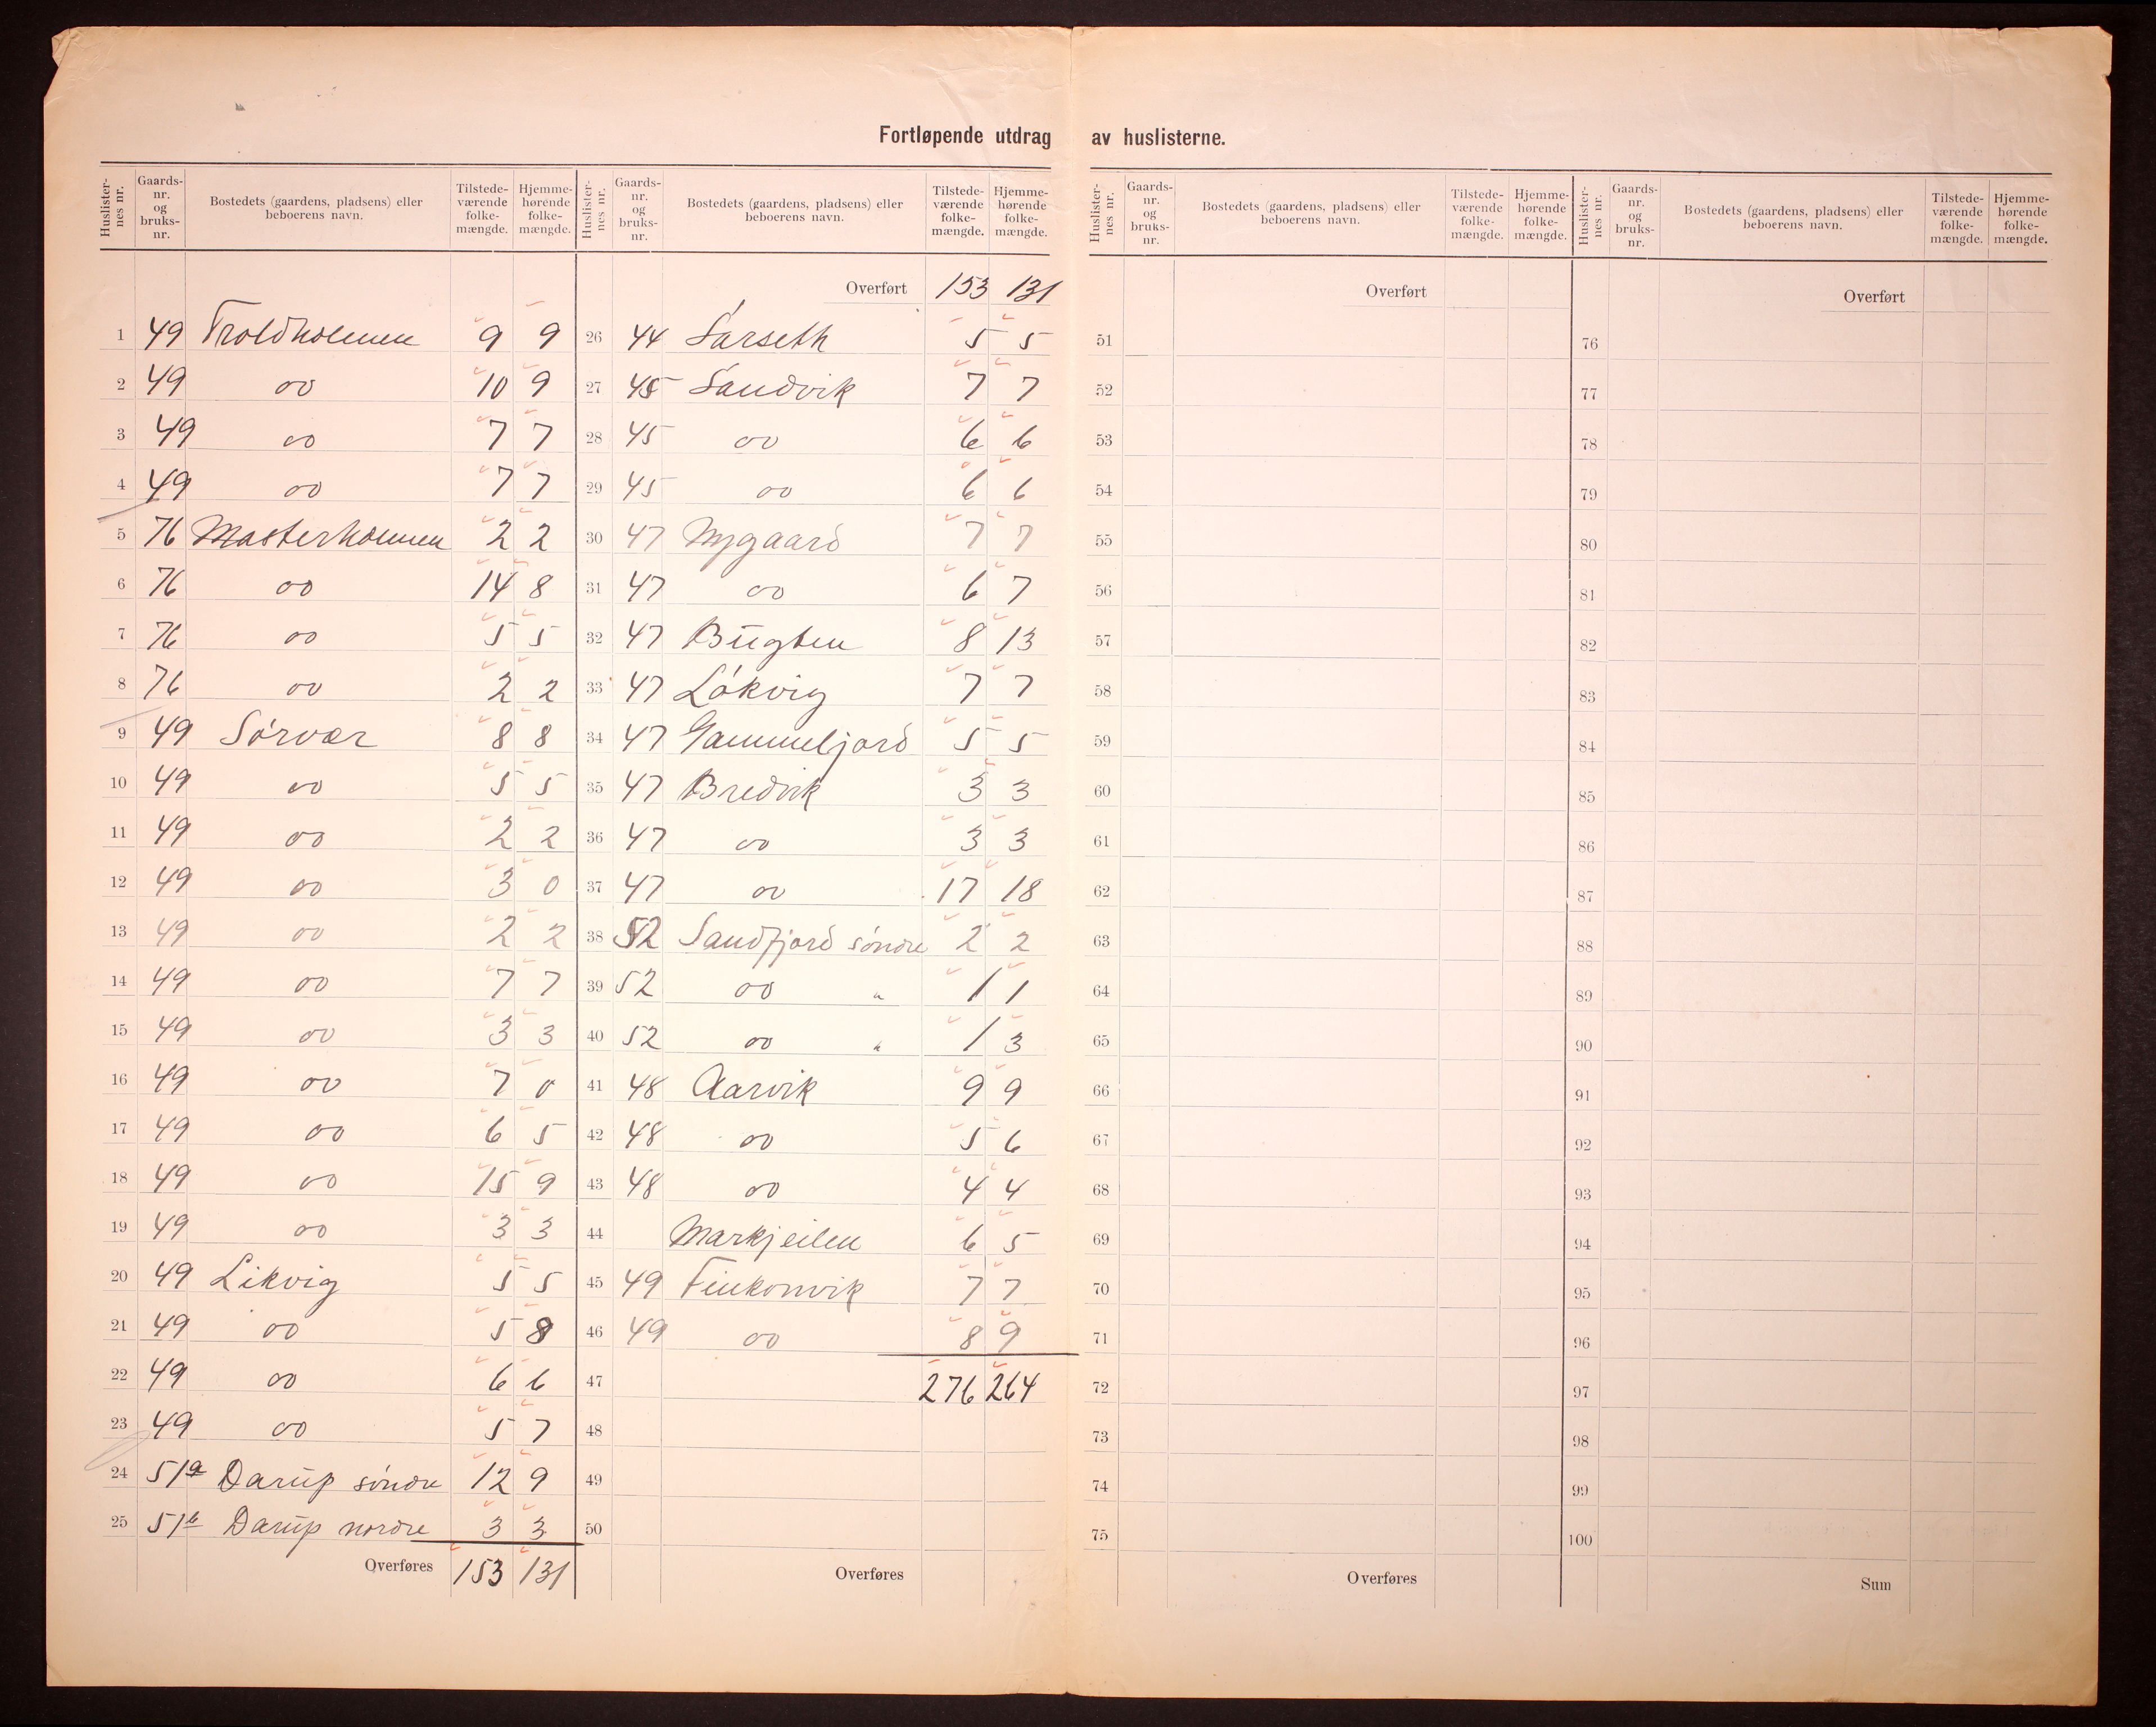 Fortløpende utdrag av huslisterne.
Huslisternes nr. Gaards-nr. og bruks-nr. Bostedets (gaardens, pladsens) eller beboerens navn. Tilstedeværende folkemængde. Hjemmehørende folkemængde.
1 49 Troldholmen 9 9
2 49 do 10 9
3 49 do 7 7
4 49 do 7 7
5 76 Masterholmen 2 2
6 76 do 14 8
7 76 do 5 5
8 76 do 2 2
9 49 Sórvær 8 8
10 49 do 5 5
11 49 do 2 2
12 49 do 3 0
13 49 do 2 2
14 49 do 7 7
15 49 do 3 3
16 49 do 7 0
17 49 do 6 5
18 49 do 15 9
19 49 do 3 3
20 49 Likvig 5 5
21 49 do 5 8
22 49 do 6 6
23 49 do 5 7
24 51a Darup söndre 12 9
25 51b Darup nordre 3 3
Overføres 153 131
Huslisternes nr. Gaards-nr. og bruks-nr. Bostedets (gaardens, pladsens) eller beboerens navn. Tilstedeværende folkemængde. Hjemmehørende folkemængde.
Overført 153 131
26 44 Sarseth 5 5
27 45 Sandvik 7 7
28 45 do 6 6
29 45 do 6 6
30 47 Nygaard 7 7
31 47 do 6 7
32 47 Bugten 8 13
33 47 Lökvig 7 7
34 47 Gammelfjord 5 5
35 47 Bredvik 3 3
36 47 do 3 3
37 47 do 17 18
38 52 Sandfjord söndre 2 2
39 52 do " 1 1
40 52 do " 1 3
41 48 Aarvik 9 9
42 48 do 5 6
43 48 do 4 4
44 Markjeilen 6 5
45 49 Finkonvik 7 7
46 49 do 8 9
47 276 264
48
49
50
Overføres
Huslisternes nr. Gaards-nr. og bruks-nr. Bostedets (gaardens, pladsens) eller beboerens navn. Tilstedeværende folkemængde. Hjemmehørende folkemængde.
Overført
51
52
53
54
55
56
57
58
59
60
61
62
63
64
65
66
67
68
69
70
71
72
73
74
75
Overføres
Huslisternes nr. Gaards-nr. og bruks-nr. Bostedets (gaardens, pladsens) eller beboerens navn. Tilstedeværende folkemængde. Hjemmehørende folkemængde.
Overført
76
77
78
79
80
81
82
83
84
85
86
87
88
89
90
91
92
93
94
95
96
97
98
99
100
Sum